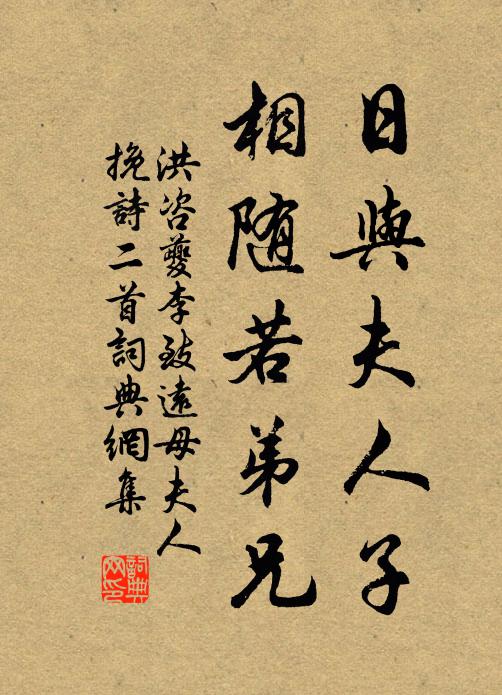 日與夫人子
相随若弟兄
洪咨夔李致遠母夫人
挽詩二首詞典網集
詞典
网印